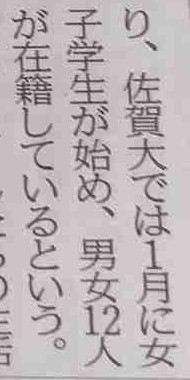 り、佐賀大では1月に女
子学生が始め、男女12人
が在籍しているという。